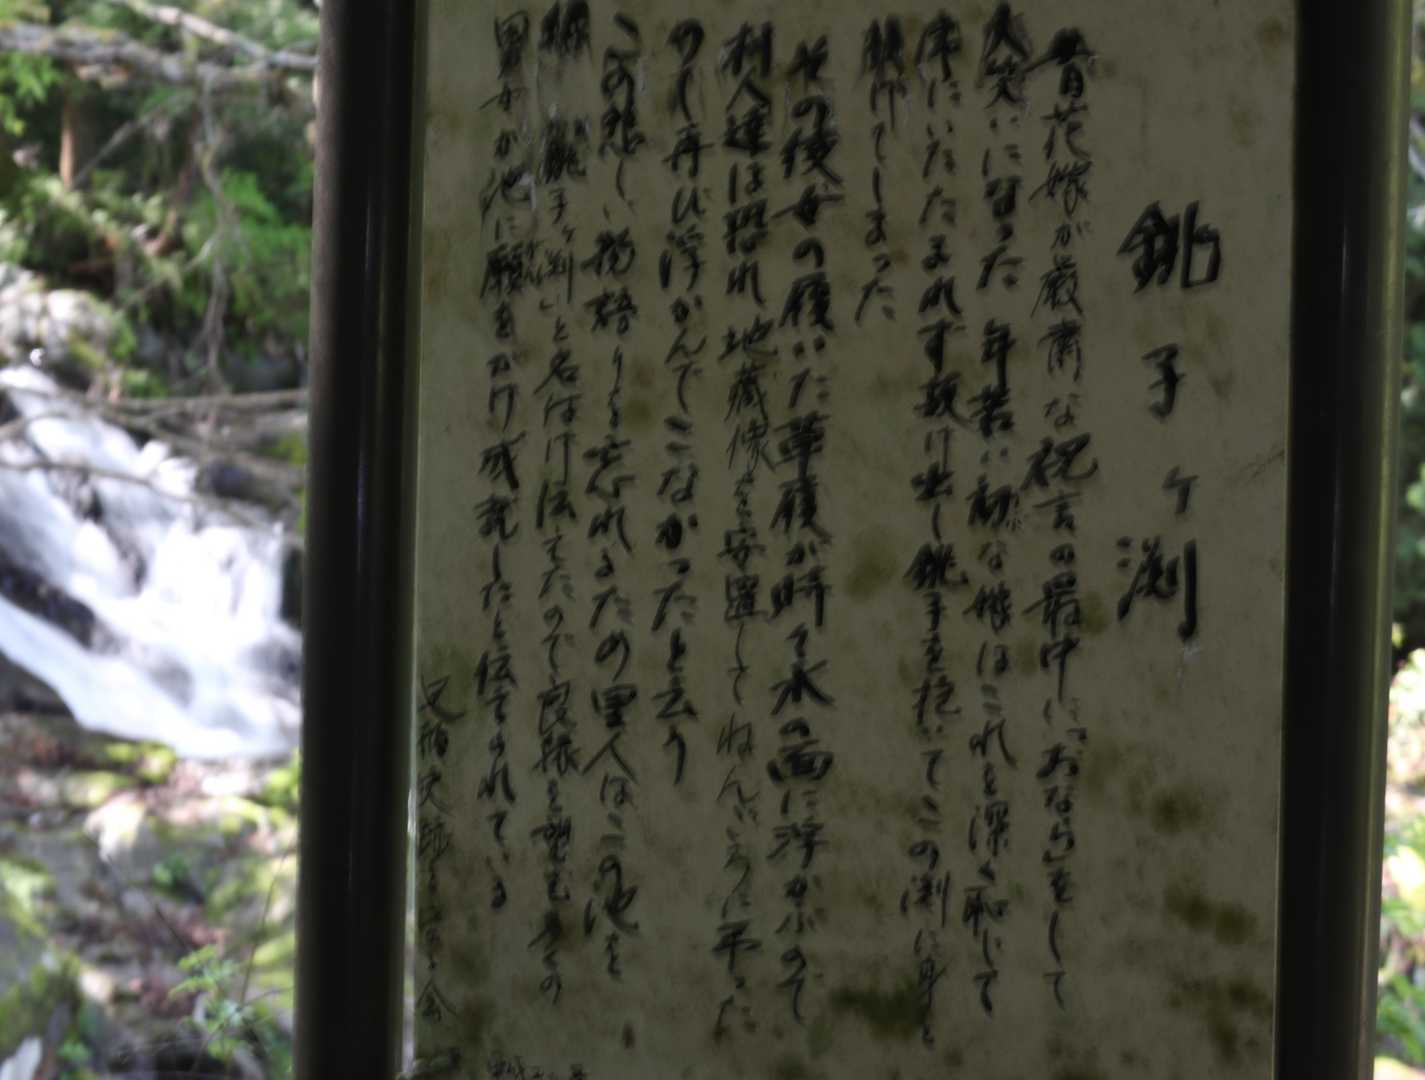 銚子ヶ渕
昔花嫁が厳粛な祝言の最中に「おなら」をして
大笑いになった 年若い初な娘はこれを深く恥じて
席にいたたまれず抜け出し銚子を抱いてこの渕に身を
投げてしまった
その後女の履いた草履が時々水の面に浮かぶので
村人達は恐れ地蔵像を安置してねんごろに弔った
のし再び浮かんでこなかったと云う
この悲しい物語りを忘れるための里人はこの池を
銚子ヶ渕」と名付け伝えたので良縁を望む多くの
男女が池に願をかけ成就したと伝えられている